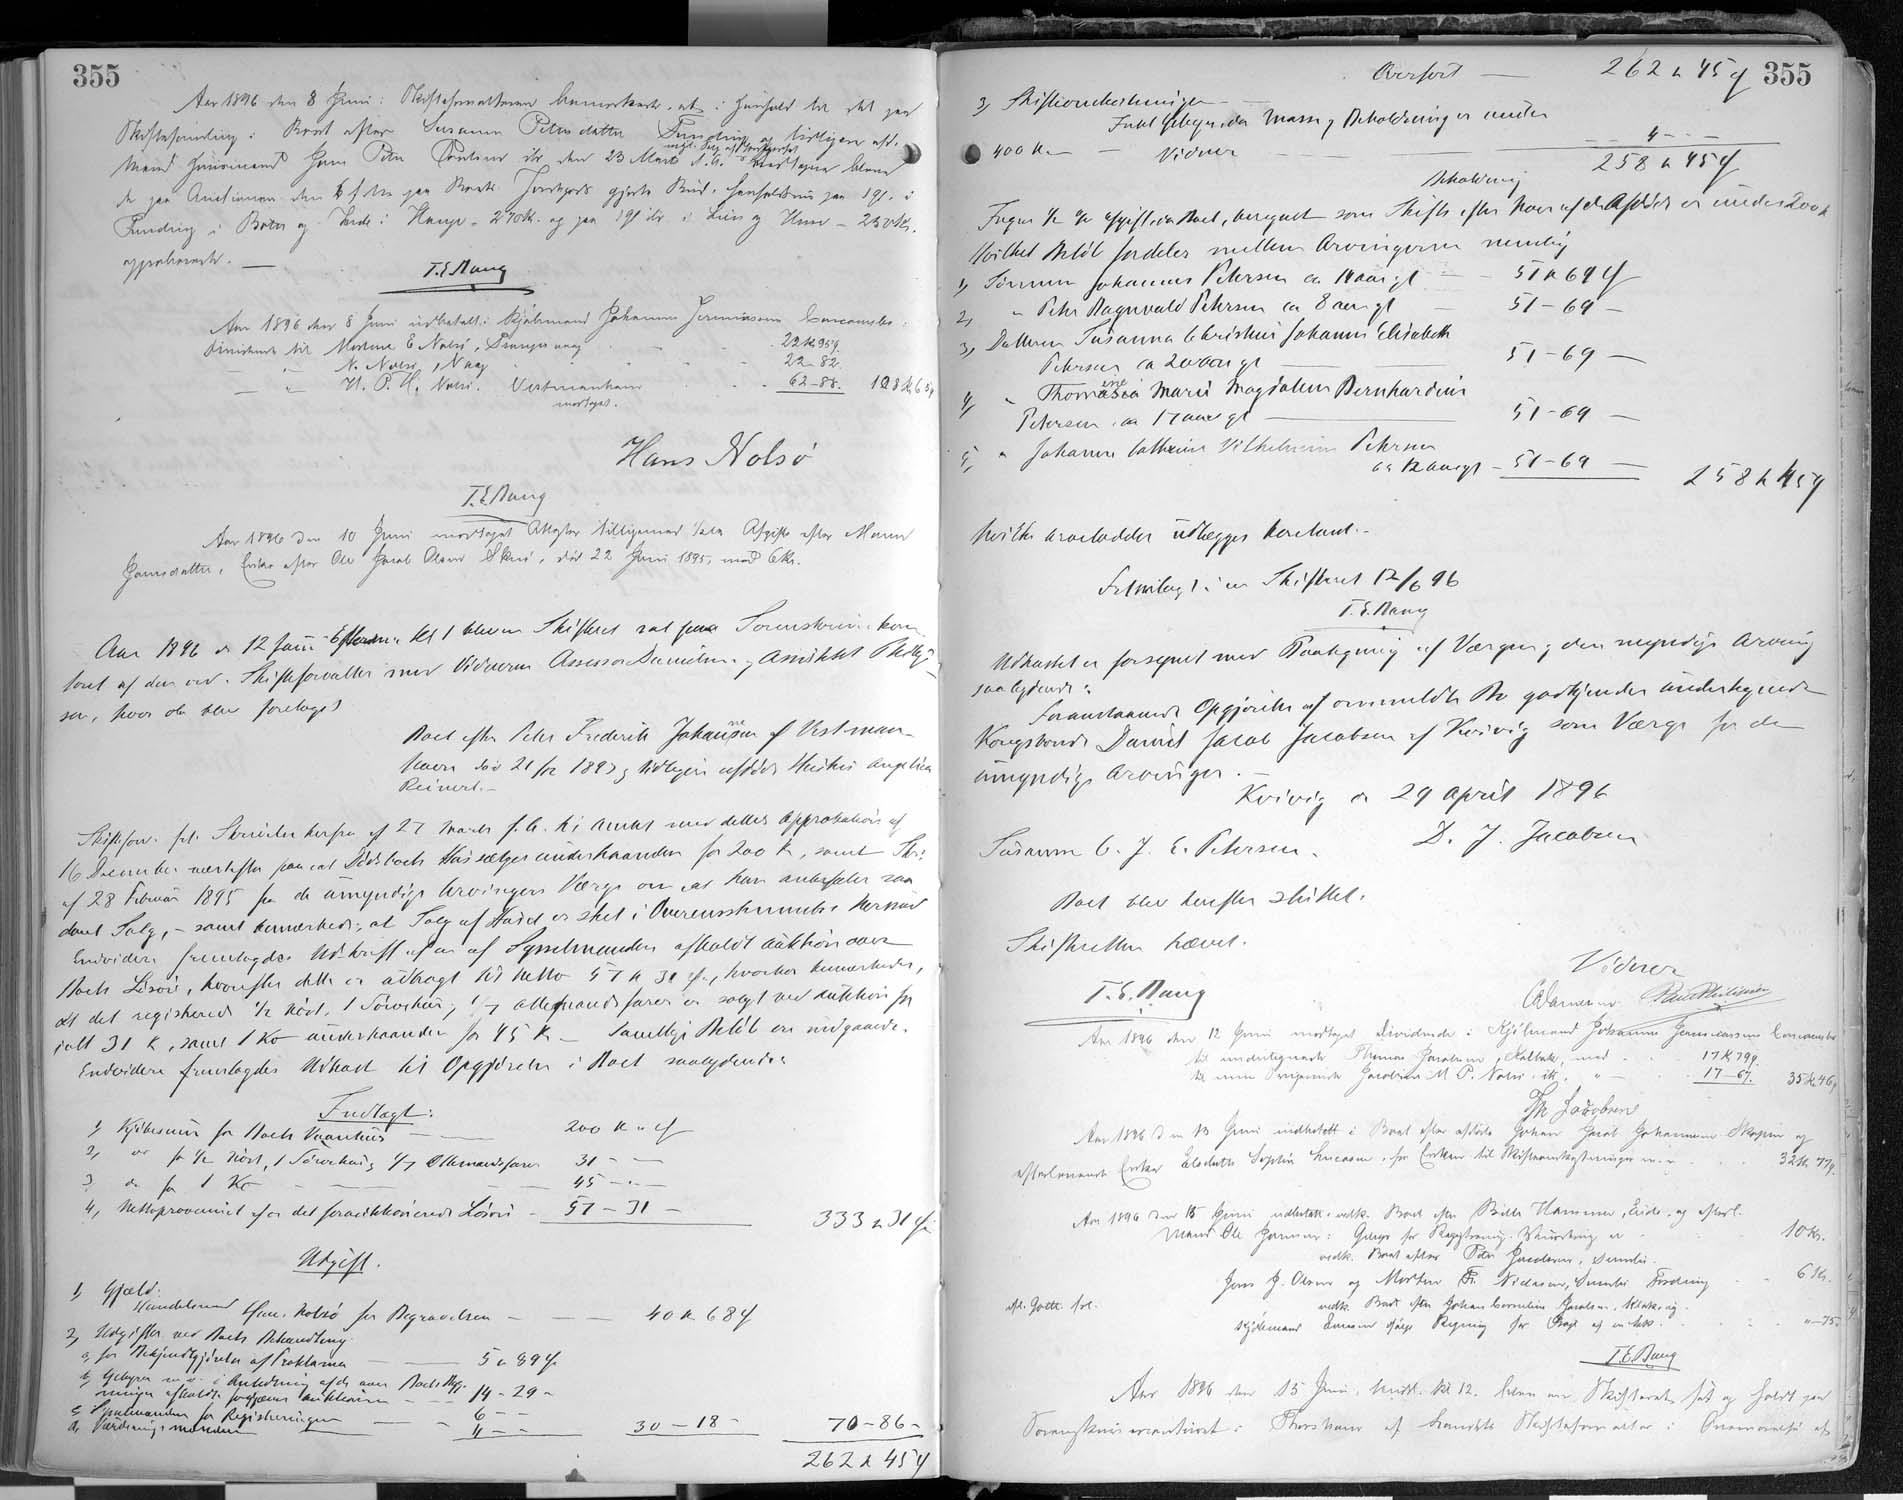 355
Aar 1896 den 8 Juni: Skifteforvalteren bemærkede, at i Henhold til det paa
Skiftesamling i Boet efter Susanna Petersdatter Funding og tidligere afd.
Mand Huusmand Hans Peter Poulsen ibr den 23 Marts d. A. modtagne bleve
de paa Auctionen den 6 f. M. paa Boets Jordgods gjorte Bud, henholdsvis paa 1 gl. i
Funding i Bøur og Inde i Hauge - 270 K. og paa 1 gl. ibr. i Lien og Huse - 250 Kr.
approberede.
T.E.Bang
Aar 1896 den 8 Juni udbetalt i Kjøbmand Johannes Jeremiassens Concoursbo:
Dividende til Mortine E Nolsø, Trangisvaag 22 K 95 Ø
N. Nolsø, Vaag 22 - 82.
H. P. H. Nolsø. Vestmanhavn 62 - 88. 108 K 65 Ø
modtaget.
Hans Nolsø
T.E.Bang
Aar 1896 den 10 Juni modtaget Attester tilligemed ½ pCt. Afgift efter Maren
Hansdatter, Enke efter Ole Jacob Olsen Skuø, død 22 Juni 1895, med 6 Kr.
Aar 1896 d 12 Juni Efterm. Kl 1 blev en Skifteret sat paa Sorenskriverkon-
toret af den ord. Skifteforvalter med Vidnerne Assessor Danielsen og Assistent Philip-
sen, hvor da blev foretaget
Boet efter Peter Frederik Johannesen af Vestman-
havn død 21/12 1893 og tidligere afdøde Hustru Angelica
Reinert.-
Skiftesforv. frl. Skrivelse herfra af 27 Marts f. A. til Amtet med dettes Approbation af
16 December næstefter paa at Dødsboets Hus sælges underhaanden for 200 K, samt Skr:
af 28 Februar 1895 fra de umyndige Arvingers Værge om at han anbefaler saa
dant Salg, - samt bemærkede, at Salg af Huset er sket i Overensstemmelse hermed
Endvidere fremlagdes Udskrift af en af Sysselmanden afholdt Auktion over
Boets Løsøre, hvorefter dette er udbragt til Netto 57 K 31 Ø, hvorhos bemærkedes,
at det registrerede ½ Nøst, 1 Tørvehus, 1/7 Ottemandsfarer er solgt ved Auktion for
ialt 31 K, samt 1 Ko underhaanden for 45 K - Samtlige Beløb ere indgaaede.
Endvidere fremlagdes Udkast til Opgjørelse i Boet saalydende:
Indtægt:
1, Kjøbesum for Boets Vaaninghus 200 K " Ø
2, do for ½ Nøst, 1 Tørvehus og 1/7 Ottemandsfarer 31 - -
3, do for 1 Ko 45 - " -
4, Nettoprovenuet af det forauktionerede Løsøre - 57 - 31 - 333 K 31 Ø
Udgift.
1, Gjæld:
Handelsmand Hans Nolsø for Begravelsen 40 K 68 Ø
2, Udgifter ved Boets Behandling
a, for Bekjendtgjørelse af Proklama 5 K 89 Ø
b, Gebyrer m.v. i Anledning af de over Boets Byg-
ninger afholdte forgjæves Auktioner 14 - 29 -
c, Sysselmanden for Registreringen 6 - -
d, Vurderingsmændene 4 - - 30 - 18 - 70 - 86 -
262 K 45 Ø
355
Overført 262 K 45 Ø
3, Skifteomkostninger
Intet Gebyr, da Massens Beholdning er under
400 K - Vidner 4 - -
Beholdning 258 K 45 Ø
Ingen ½ pr afgift, da Boet, beregnet som Skifte efter hver af de Afdøde er under 200 K
Hvilket Beløb fordeles mellem Arvingerne nemlig
1, Sønnen Johannes Petersen ca 14 aar gl 51 K 69 Ø
2, " Peter Ragnvald Petersen ca 8 aar gl 51 - 69 -
3, Datteren Susanna Christine Johanne Elisabeth
Petersen ca 20 aar gl 51 - 69 -
4, " Thomasine Marie Magdalena Bernhardine
Petersen ca 17 aar gl 51 - 69 -
5, " Johanne Cathrine Vilhelmine Petersen
ca 12 aar gl - 51 - 69 - 258 K 45 Ø
hvilke Arvelodder udlægges kontant.-
Fremlagt i en Skifteret 12/6 96
T.E.Bang
Udkastet er forsynet med Paategning af Værgen og den myndige Arving
saalydende:
Foranstaaende Opgjørelse af ommeldte Bo godkjendes undertegnede
Kongsbonde Daniel Jacob Jacobsen af Kvivig som Værge for de
umyndige Arvinger.-
Kvivig d 29 April 1896
Susanna C. J. E. Petersen. D. J. Jacobsen
Boet blev derefter sluttet.
Skifteretten hævet.
Vidner
T.E.Bang
Danielsen Poul Philipsen
Aar 1896 den 12 Juni modtaget Dividende i Kjøbmand Johannes Jeremiassens Concoursbo
til undertegnede Thomas Jacobsen, Kalbak, med 17 K 79 Ø.
til min Svigerinde Jacobine M P. Nolsø ib. " 17 - 67. 35 K 46 Ø
Th Jacobsen
Aar 1896 den 13 Juni indbetalt i Boet efter afdøde Johan Jacob Johannesen Skopun og
efterlevende Enke Elsebeth Sophie Lucasen, fra Enken til Skifteomkostninger m.v. 32 K 77 Ø.
Aar 1896 den 15 Juni udbetalt vedk. Boet efter Billa Hammer, Eide, og efterl.
Mand Ole Hammer: Gebyr for Registrering, Vurdering m 10 Kr.
vedk. Boet efter Peter Jacobsen, Sumbø.
Jens J. Olsen og Morten Fr. Niclasen, Sumbø Fordring 6 Kr.
vedk. Boet efter Johan Cornelius Jacobsen, Klaksvig.
Kjøbmand ifølge Regning for " - 75.
T.E.Bang
Aar 1896 den 15 Juni, Middl. Kl 12. blev en Skifteret sat og holdt paa
Sorenskrivercontoret i Thorshavn af Landets Skifteforvalter i Overværelse af